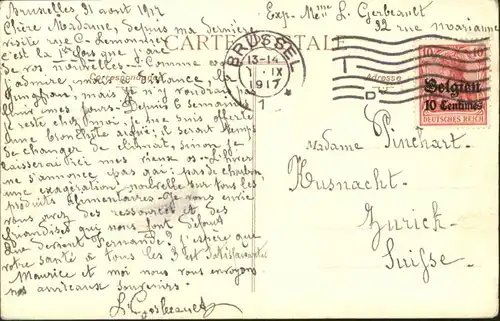 Bruxelles 31 août 1917
Chère Madame, depuis ma dernière
visite rue
c'est la 1re fois que j'ai
de vos nouvelles. Comme vous
j'admire
Jungfrau, mais je n'y voudrais pas
jours. Depuis 6 semaines
je reste chez moi, je me suis offerte
une bronchite aiguë, il serait temps
de changer de climat, sinon je
laisserai ici mes vieux os. L'hiver
ne s'annonce pas gai: pas de charbon
une exagération nouvelle sur tous les
produits alimentaires. Je vous envie
vous avez des ressources et des
qui nous font défaut
Que devient Fernande? J'espère que
votre santé à tous les 3 est satisfaisante
Maurice et moi nous vous envoyons
nos souvenirs.
L. Gerbeault
Exp. Mme L. Gerbeault
32 rue marianne
CARTE POSTALE
Correspondance
Adresse
BRÜSSEL
13-14
1. IX
1917
1
Belgien
10 Centimes
DEUTSCHES REICH
Madame Pinchart
Kusnacht
Zurich
Suisse